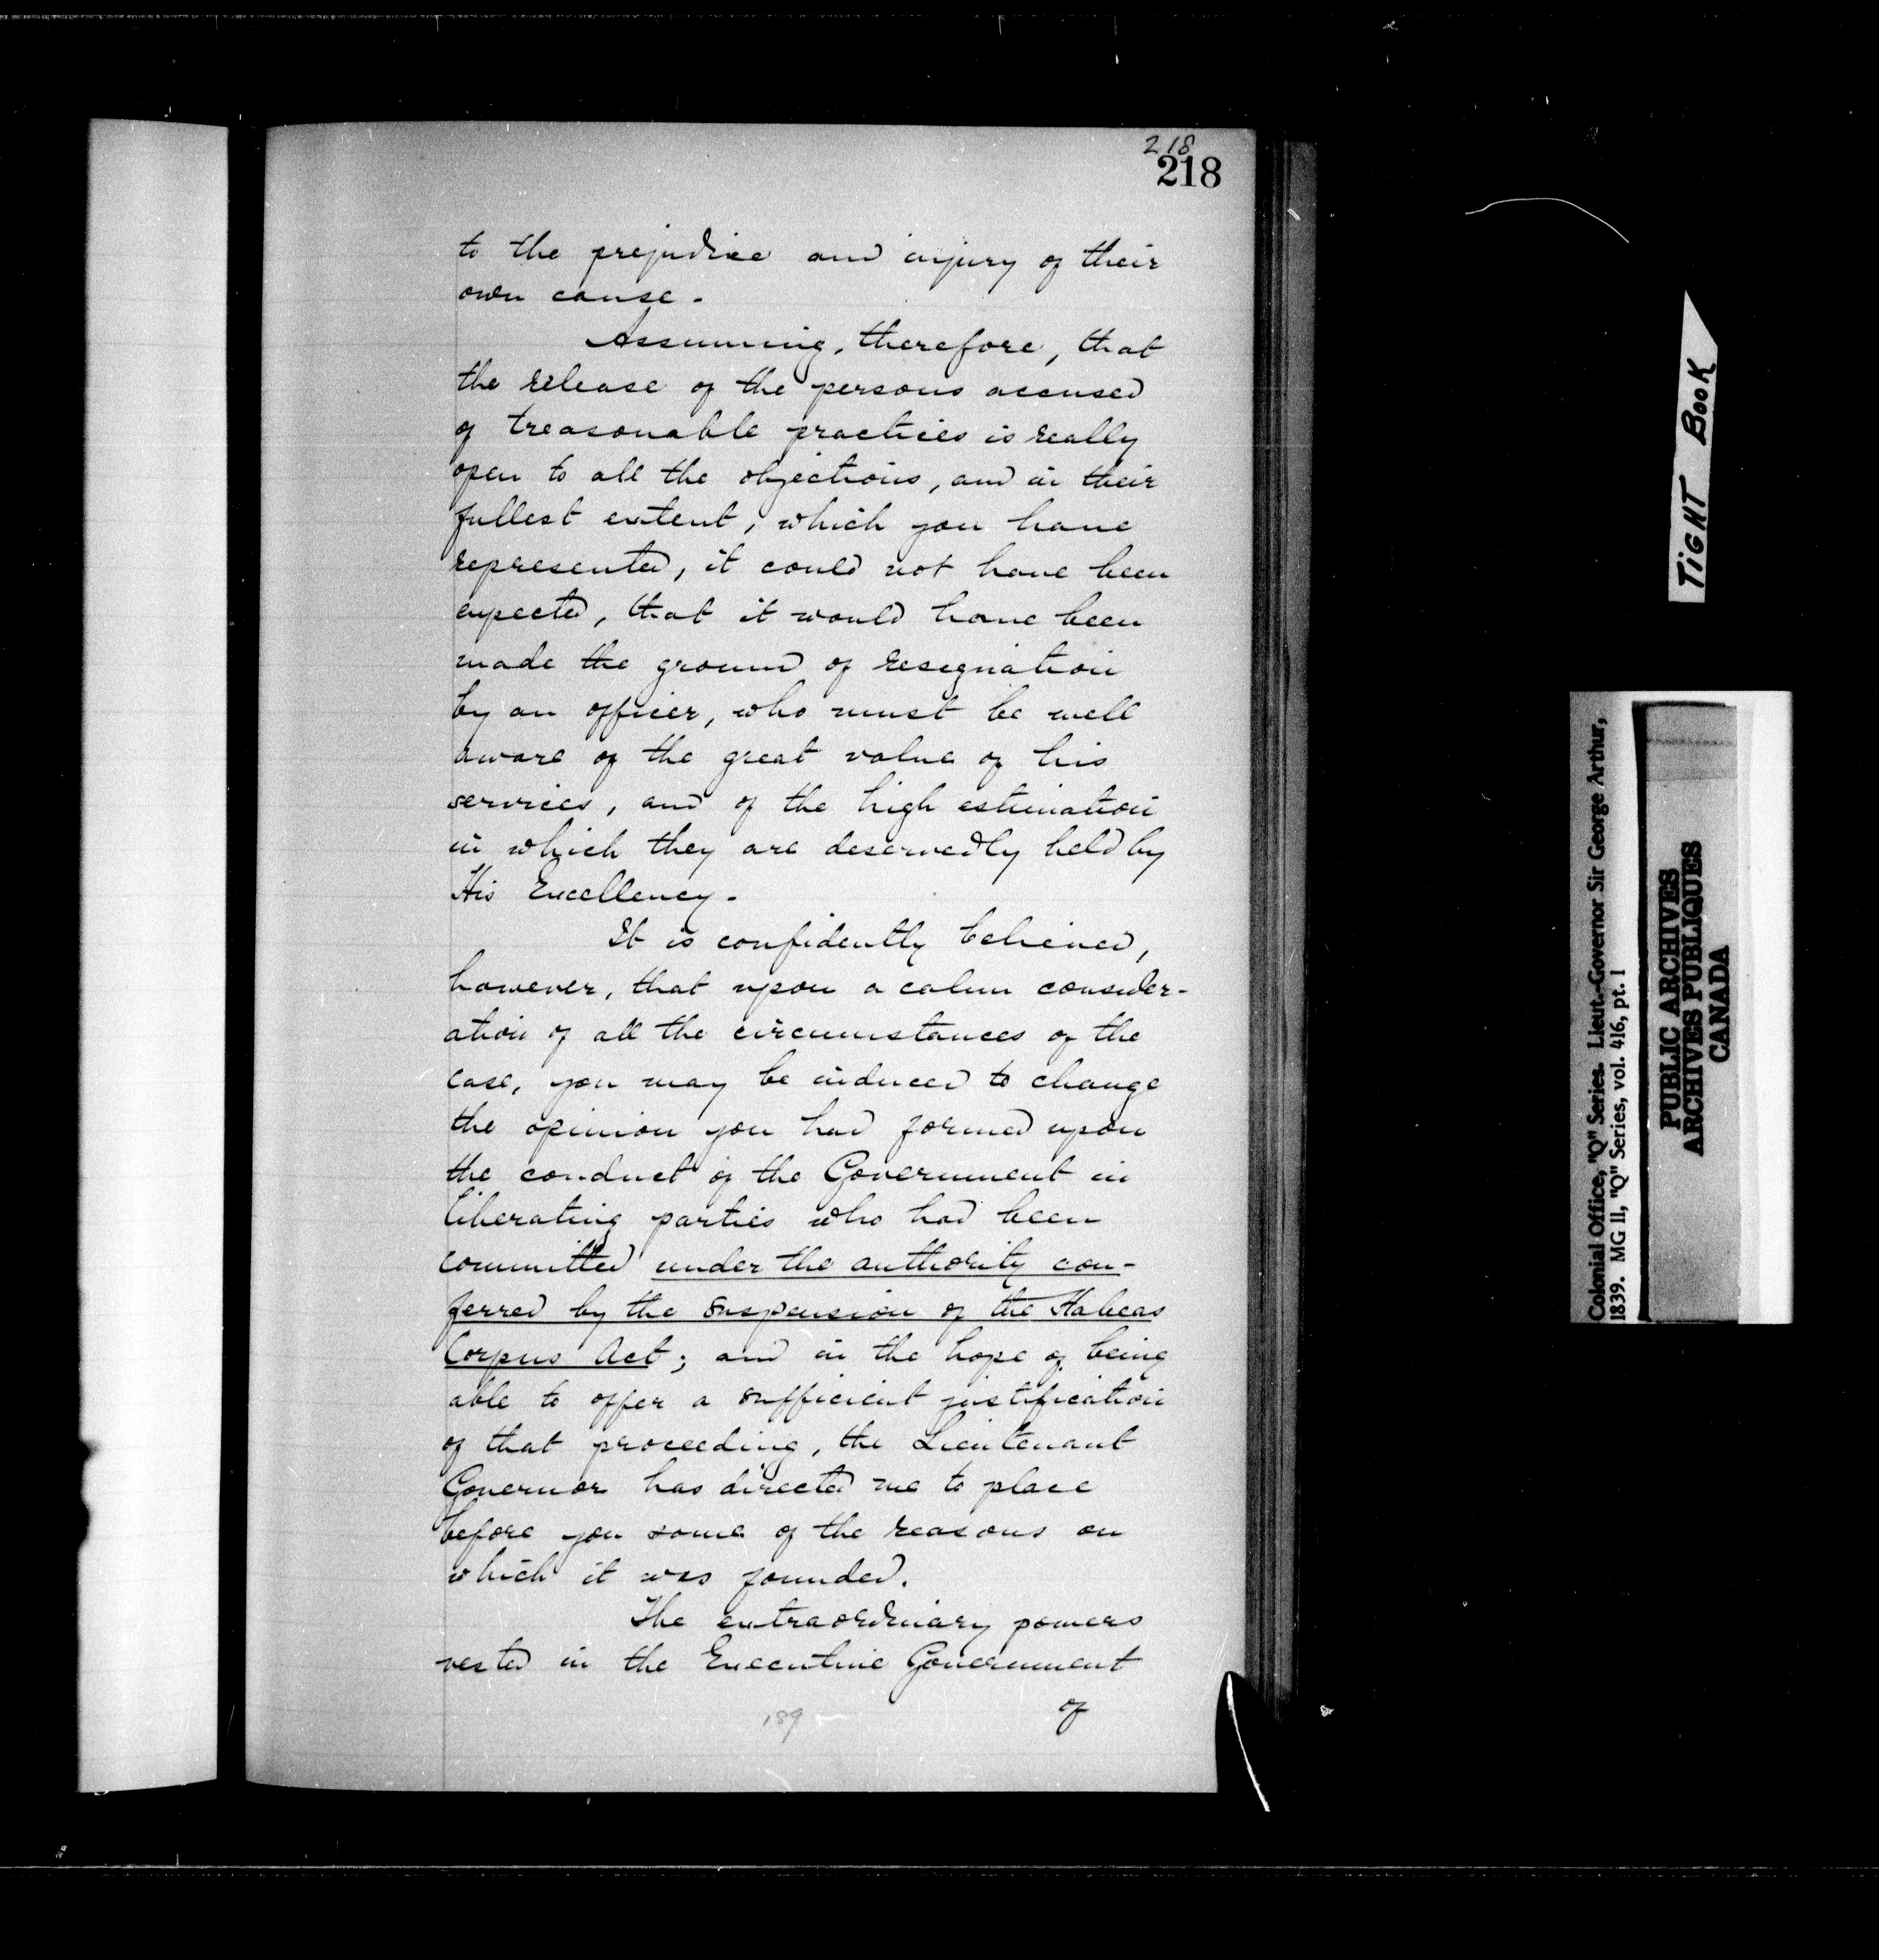 218
218
to the prejudice and injury of their
own cause.
Assuming, therefore, that
the release of the persons accused
of treasonable practices is really
open to all the objections, and in their
fullest extent, which you have
represented, it could not have been
expected, that it would have been
made the ground of resignation
by an officer, who must be well
aware of the great value of his
services, and of the high estimation
in which they are deservedly held by
His Excellency.
It is confidently believed,
however, that upon a calm consider-
ation of all the circumstances of the
case, you may be induced to change
the opinion you had formed upon
the conduct of the Government in
liberating parties who had been
committed under the authority con-
ferred by the suspension of the Habeas
Corpus Act; and in the hope of being
able to offer a sufficient justification
of that proceeding, the Lieutenant
Governor has directed me to place
before you some of the reasons on
which it was founded.
The extraordinary powers
vested in the Executive Government
of
189
TIGHT BOOK
Colonial Office, "Q" Series. Lieut.-Governor Sir George Arthur,
1839. MG 11, "Q" Series, vol. 416, pt. 1
PUBLIC ARCHIVES
ARCHIVES PUBLIQUES
CANADA